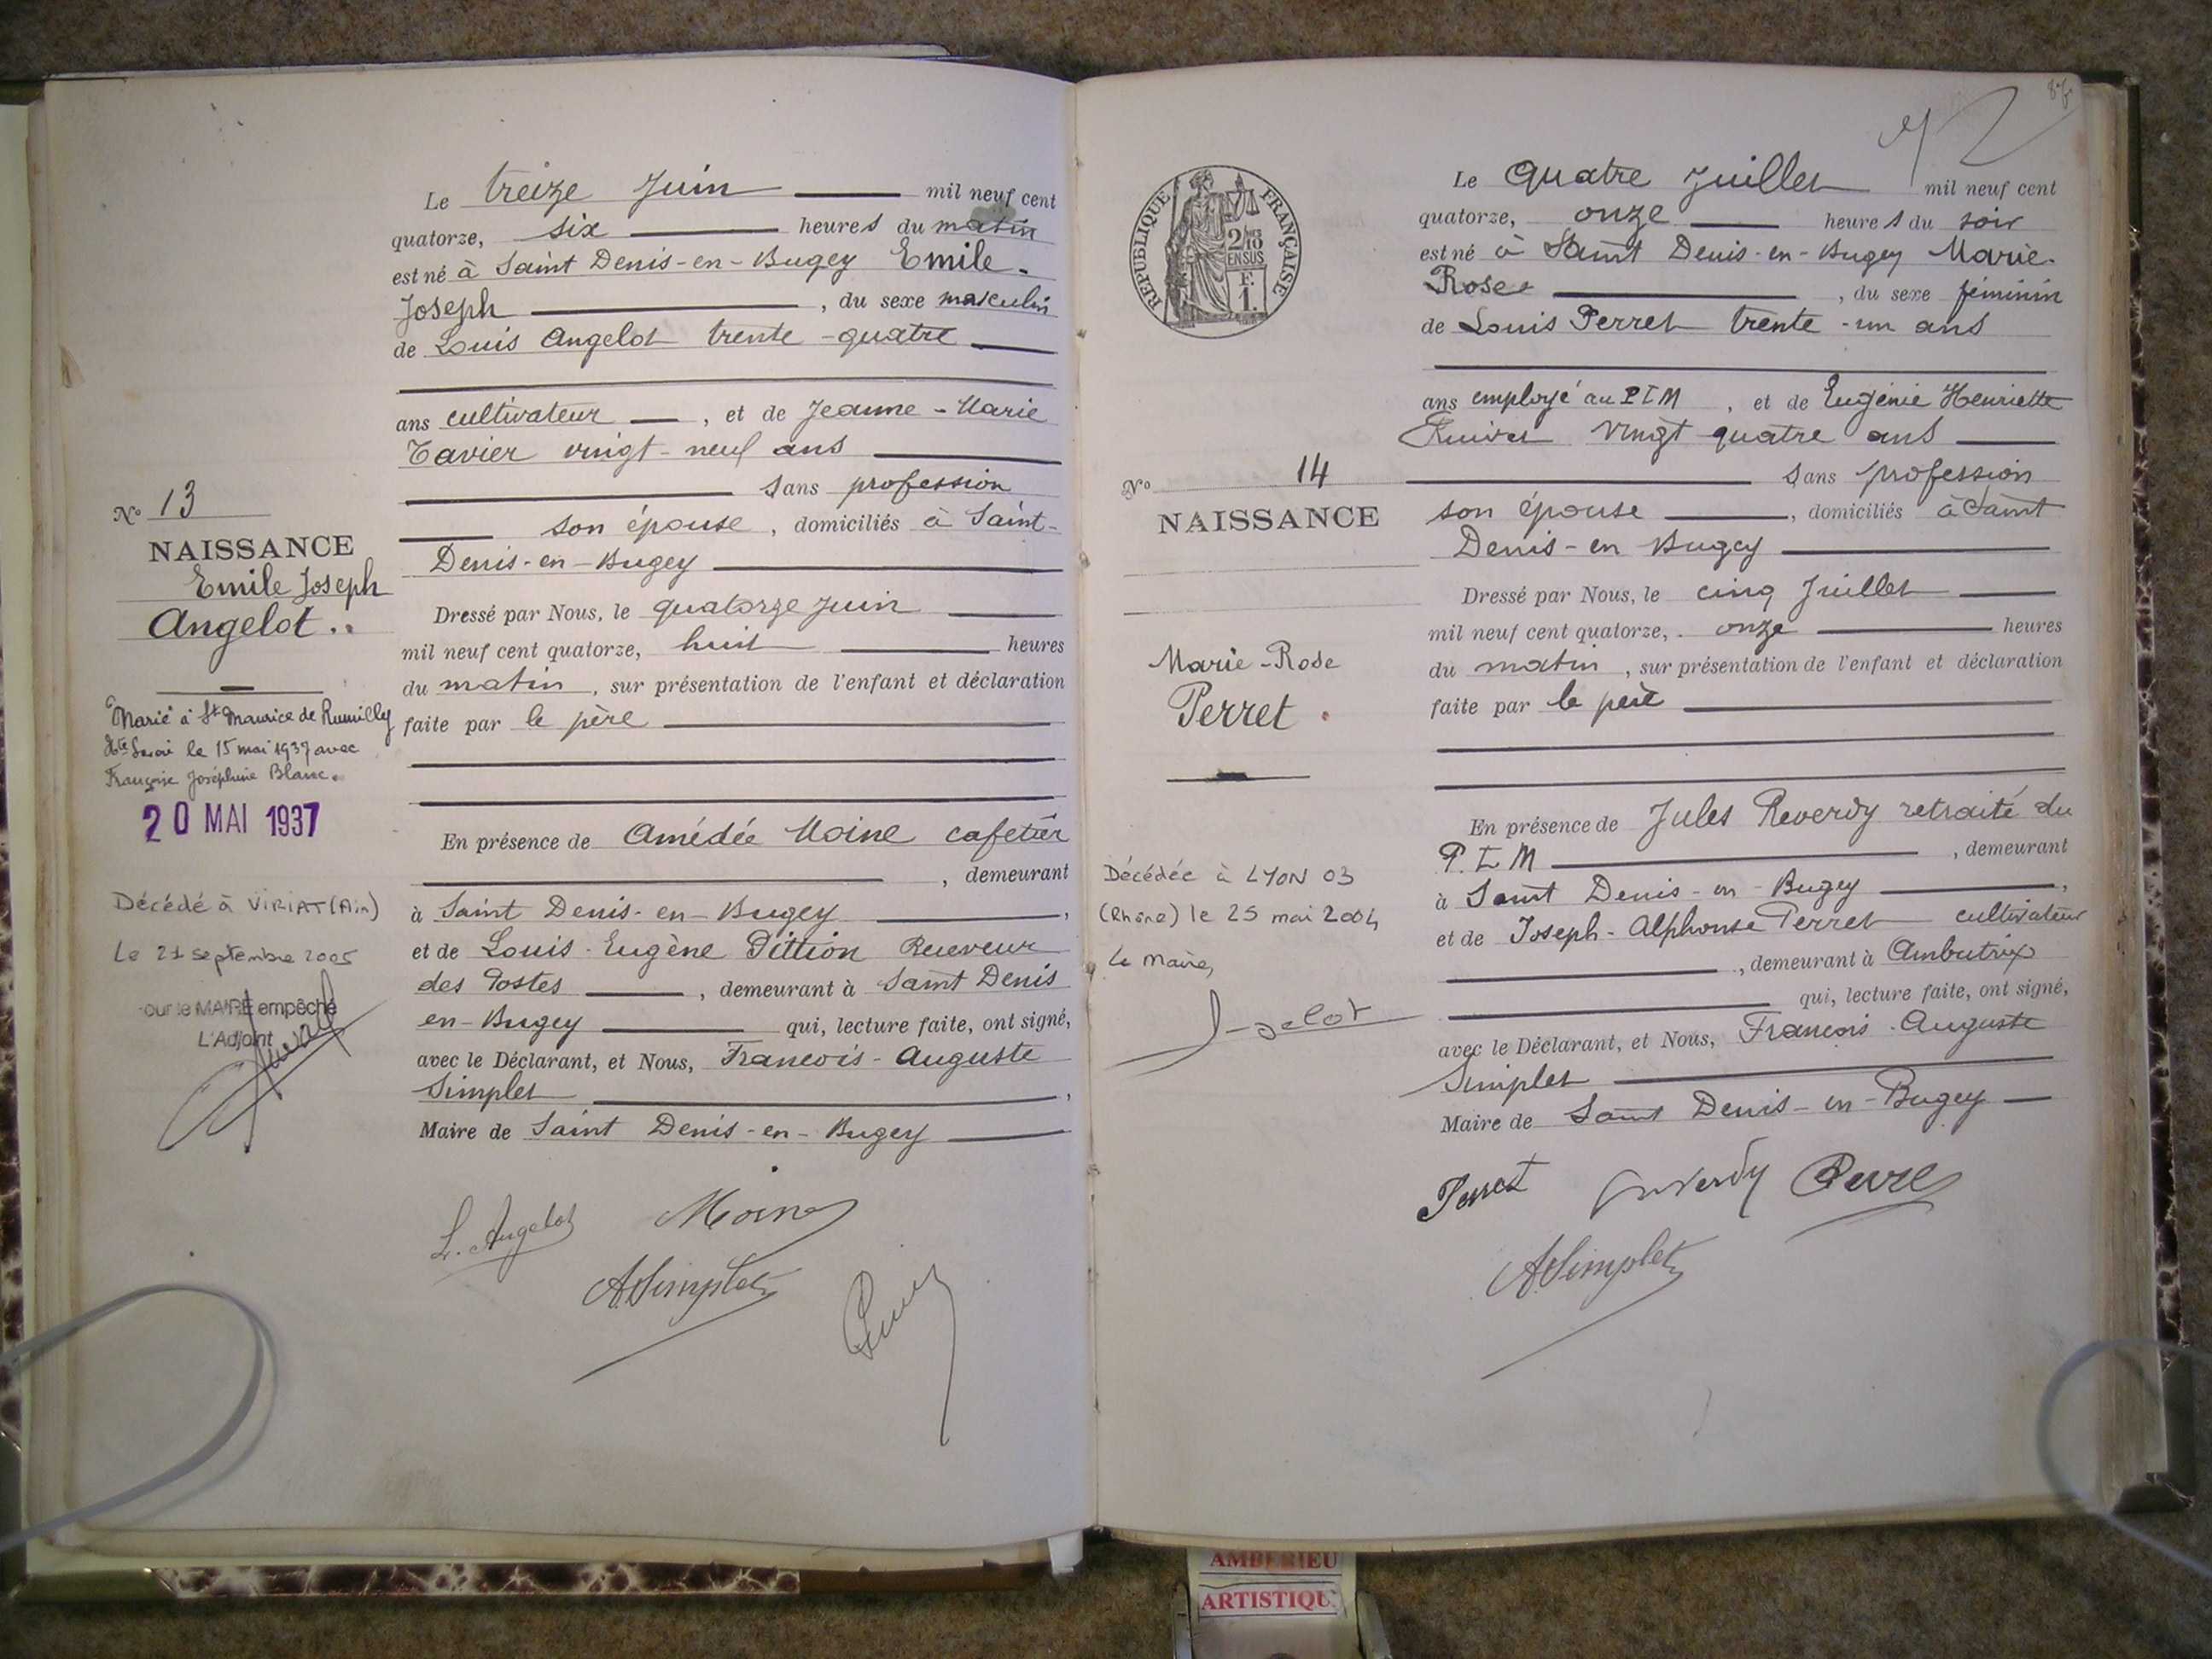 Le treize Juin mil neuf cent
quatorze, six heures du matin
est né à Saint Denis-en-Bugey Emile-
Joseph , du sexe masculin
de Louis Angelot trente-quatre
ans cultivateur , et de Jeanne-Marie
Tavier vingt-neuf ans
Sans profession
son épouse , domiciliés à Saint-
Denis-en-Bugey
Dressé par Nous, le quatorze Juin
mil neuf cent quatorze, huit heures
du matin , sur présentation de l'enfant et déclaration
faite par le père
En présence de Amédée Moine cafetier
, demeurant
à Saint Denis-en-Bugey ,
et de Louis-Eugène Dittion Receveur
des Postes , demeurant à Saint Denis
en-Bugey qui, lecture faite, ont signé,
avec le Déclarant, et Nous, Francois-Auguste
Simplet ,
Maire de Saint Denis-en-Bugey
L. Angelot Moine
A Simplet
No 13
NAISSANCE
Emile Joseph
Angelot..
Marié à St Maurice de Rumilly
Hte Savoie le 15 mai 1937 avec
Françoise Joséphine Blanc.
20 MAI 1937
Décédé à VIRIAT (Ain)
Le 21 septembre 2005
our le MAIRE empêché
L'Adjoint
RÉPUBLIQUE FRANÇAISE
2/10
EN SUS
F.
1.
Le Quatre Juillet mil neuf cent
quatorze, onze heures du soir
est né à Saint Denis-en-Bugey Marie-
Rose , du sexe féminin
de Louis Perret trente-un ans
ans employé au PLM , et de Eugénie Henriette
vingt quatre ans
Sans profession
son épouse , domiciliés à Saint
Denis-en Bugey
Dressé par Nous, le cinq Juillet
mil neuf cent quatorze, onze heures
du matin , sur présentation de l'enfant et déclaration
faite par le père
En présence de Jules Reverdy retraité du
P.L.M , demeurant
à Saint Denis-en-Bugey ,
et de Joseph-Alphonse Perret cultivateur
, demeurant à Ambutrix
qui, lecture faite, ont signé,
avec le Déclarant, et Nous, Francois-Auguste
Simplet
Maire de Saint Denis-en-Bugey
Perret Reverdy
A Simplet
No 14
NAISSANCE
Marie-Rose
Perret.
Décédée à LYON 03
(Rhône) le 25 mai 2004
Le Maire,
AMBERIEU
ARTISTIQU